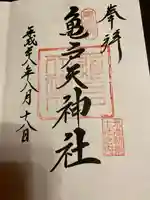 奉拝
亀戸天神社
平成廿八年八月十八日